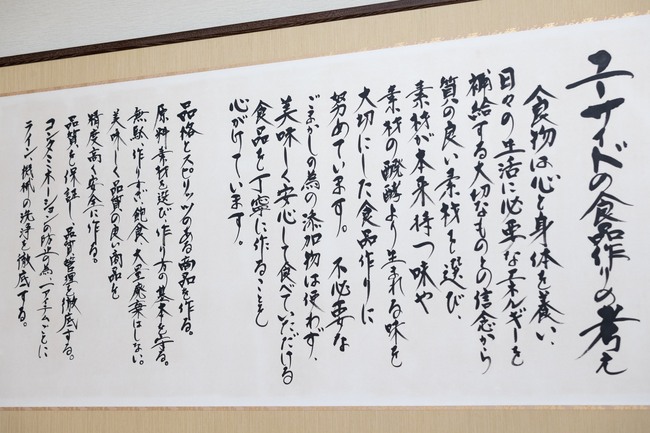 ユーサイドの食品作りの考え
食物は心と身体を養い、
日々の生活に必要なエネルギーを
補給する大切なものとの信念から
質の良い素材を選び、
素材が本来持つ味や
素材の醗酵より生まれる味を
大切にした食品作りに
努めています。 不必要な
ごまかしの為の添加物は使わず、
美味しく安心して食べていただける
食品を丁寧に作ることを
心がけています。
品格とスピリッツのある商品を作る。
原料素材を選び、作り方の基本を守る。
無駄、作りすぎ、飽食、大量廃棄はしない。
美味しく品質の良い商品を
精度高く安全に作る。
品質を保証し品質管理を徹底する。
コンタミネーションの防止の為、一アイテムごとに
ライン、機械の洗浄を徹底する。